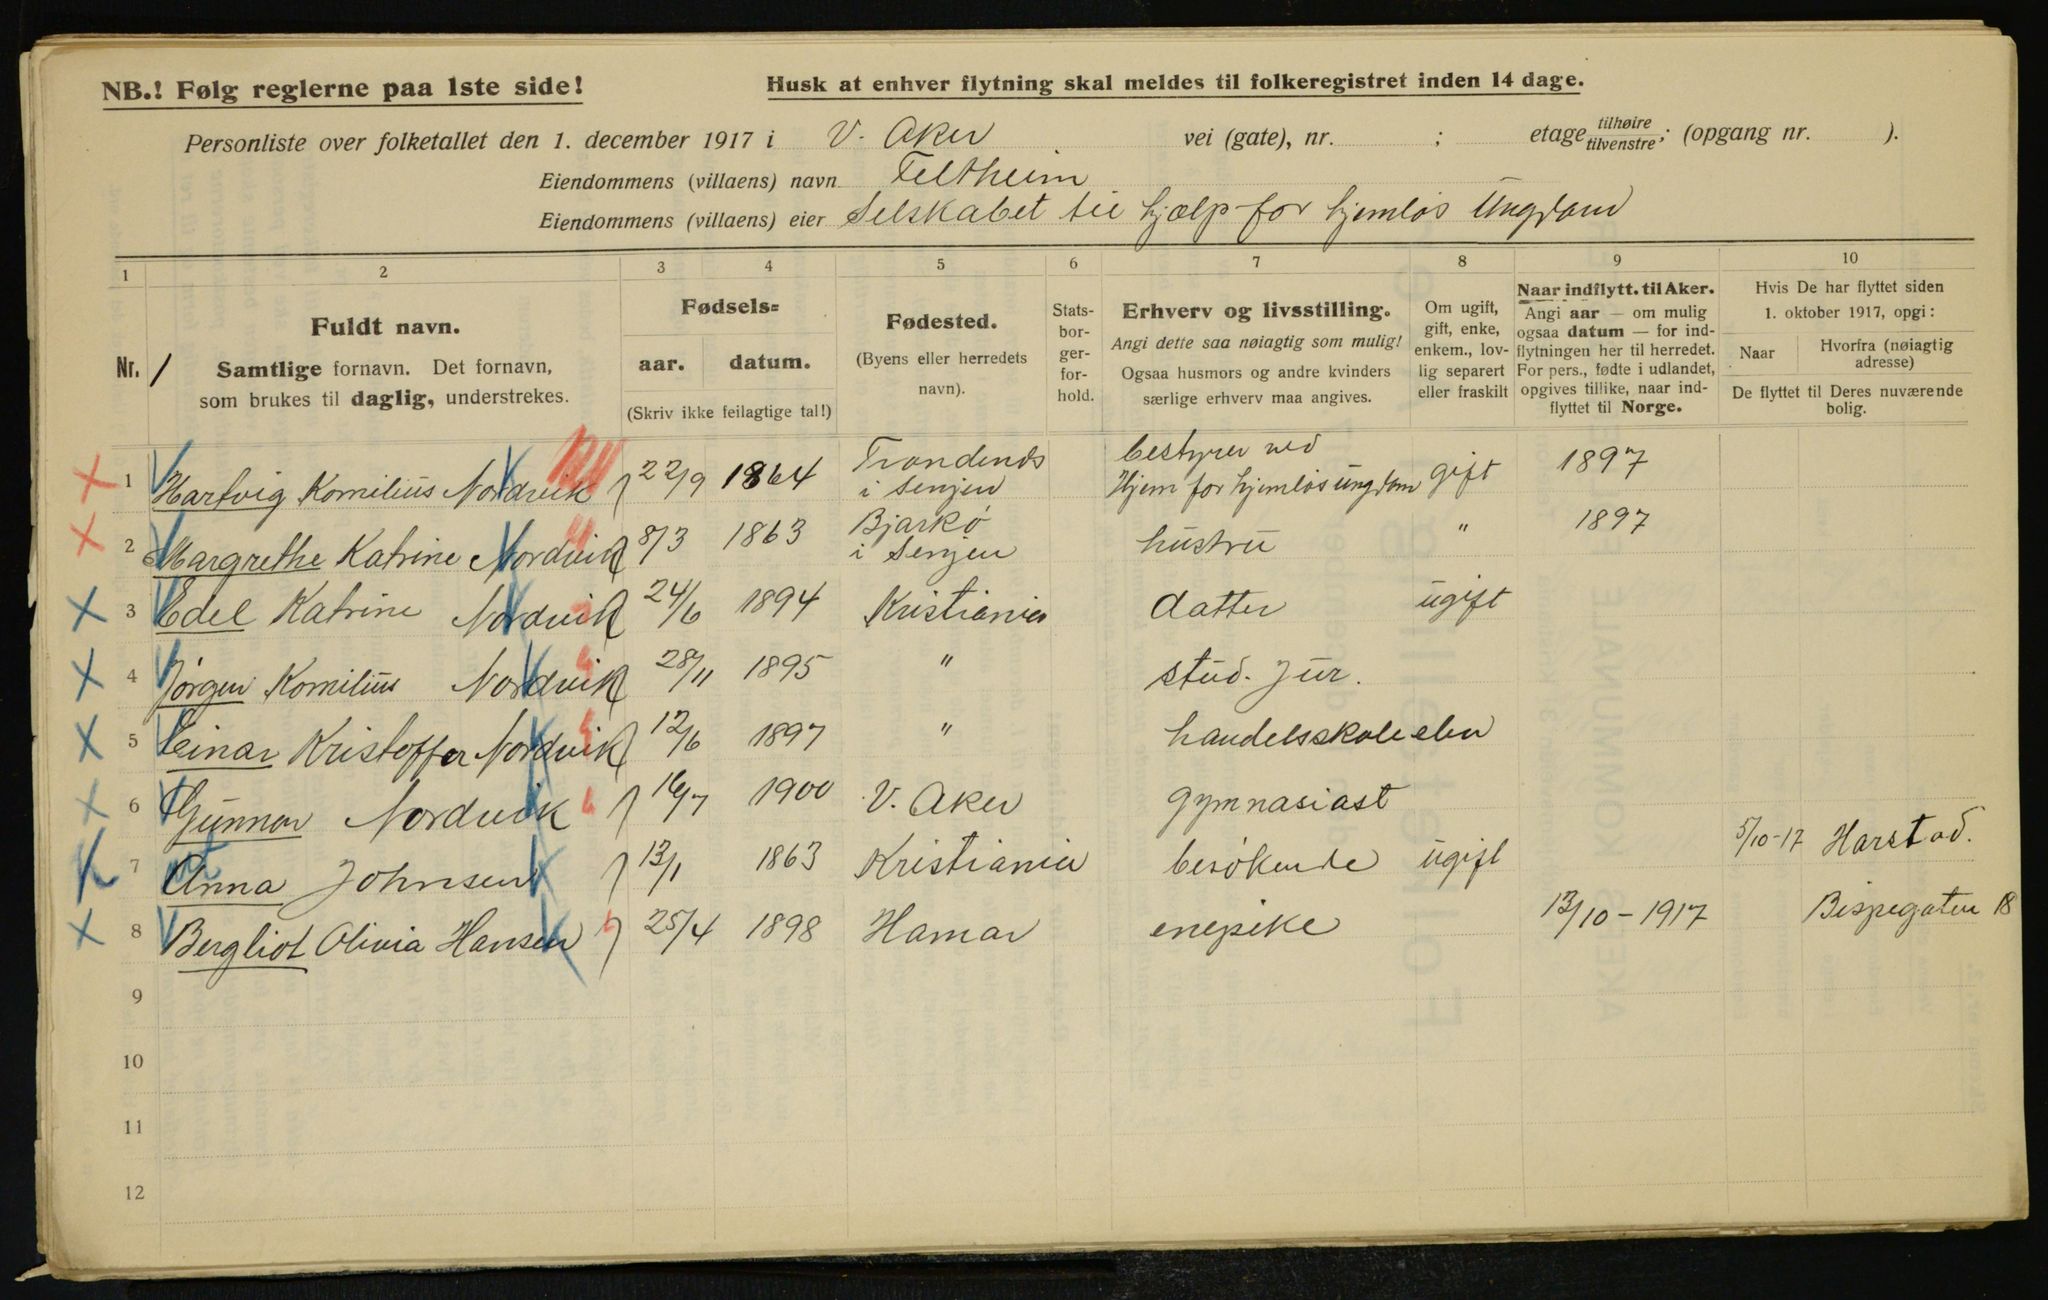 NB.! Følg reglerne paa 1ste side! Husk at enhver flytning skal meldes til folkeregistret inden 14 dage.
Personliste over folketallet den 1. december 1917 i V. Aker vei (gate), nr. ; etage tilhøire tilvenstre; (opgang nr. ).
Eiendommens (villaens) navn Feltheim
Eiendommens (villaens) eier Selskabet til hjælp for hjemløs Ungdom
1 2 3 4 5 6 7 8 9 10
Nr. Fuldt navn. Samtlige fornavn. Det fornavn, som brukes til daglig, understrekes.
Fødsels= aar. datum. (Skriv ikke feilagtige tal!)
Fødested. (Byens eller herredets navn).
Stats-bor-ger-for-hold.
Erhverv og livsstilling. Angi dette saa nøiagtig som mulig! Ogsaa husmors og andre kvinders særlige erhverv maa angives.
Om ugift, gift, enke, enkem., lov-lig separert eller fraskilt
Naar indflytt. til Aker. Angi aar — om mulig ogsaa datum — for ind-flytningen her til herredet. For pers., fødte i udlandet, opgives tillike, naar ind-flyttet til Norge.
Hvis De har flyttet siden 1. oktober 1917, opgi: Naar Hvorfra (nøiagtig adresse) De flyttet til Deres nuværende bolig.
1 Hartvig Kornilius Nordvik 22/9 1864 Trondenes i Senjen bestyrer ved Hjem for hjemløs ungdom gift 1897
2 Margrethe Katrine Nordvik 8/3 1863 Bjarkö i Senjen hustru " 1897
3 Edel Katrine Nordvik 24/6 1894 Kristiania datter ugift
4 Jörgen Kornilius Nordvik 28/11 1895 " stud. jur.
5 Einar Kristoffer Nordvik 12/6 1897 " handelsskoleelev
6 Gunnar Nordvik 16/7 1900 V. Aker gymnasiast
7 Anna Johnsen 13/1 1863 Kristiania besökende ugift 5/10-17 Harstad.
8 Bergliot Olivia Hansen 25/4 1898 Hamar enepike 13/10-1917 Bispegaten 18
9
10
11
12